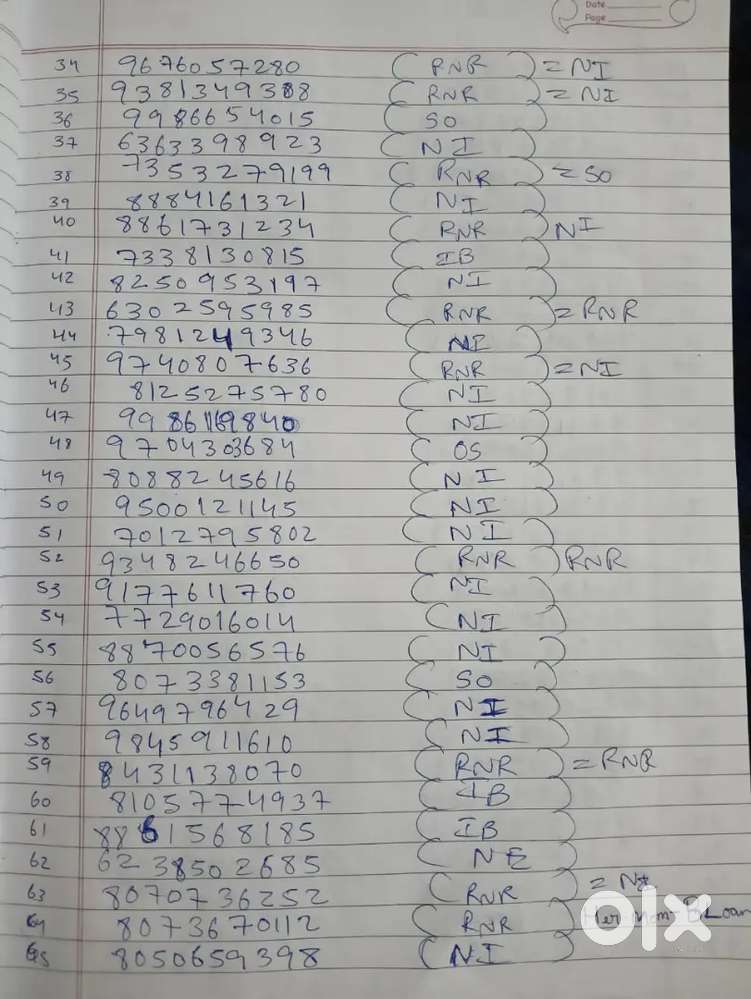 Date
Page
34 9676057280 (RNR) = NI
35 9381349388 (RNR) = NI
36 9986654015 (SO)
37 6363398923 (NI)
38 7353279199 (RNR) = SO
39 8884161321 (NI)
40 8861731234 (RNR) NI
41 7338130815 (IB)
42 8250953197 (NI)
43 6302595985 (RNR) = RNR
44 7981249346 (NI)
45 9740807636 (RNR) = NI
46 8125275780 (NI)
47 9986169840 (NI)
48 9704303684 (OS)
49 8088245616 (NI)
50 9500121145 (NI)
51 7012795802 (NI)
52 9348246650 (RNR) RNR
53 9177611760 (NI)
54 7729016014 (NI)
55 8870056576 (NI)
56 8073381153 (SO)
57 9649796429 (NI)
58 9845911610 (NI)
59 8431138070 (RNR) = RNR
60 8105774937 (IB)
61 8861568185 (IB)
62 6238502685 (NE)
63 8070736252 (RNR) =
64 8073670112 (RNR) Loan
65 8050659398 (NI)
olx